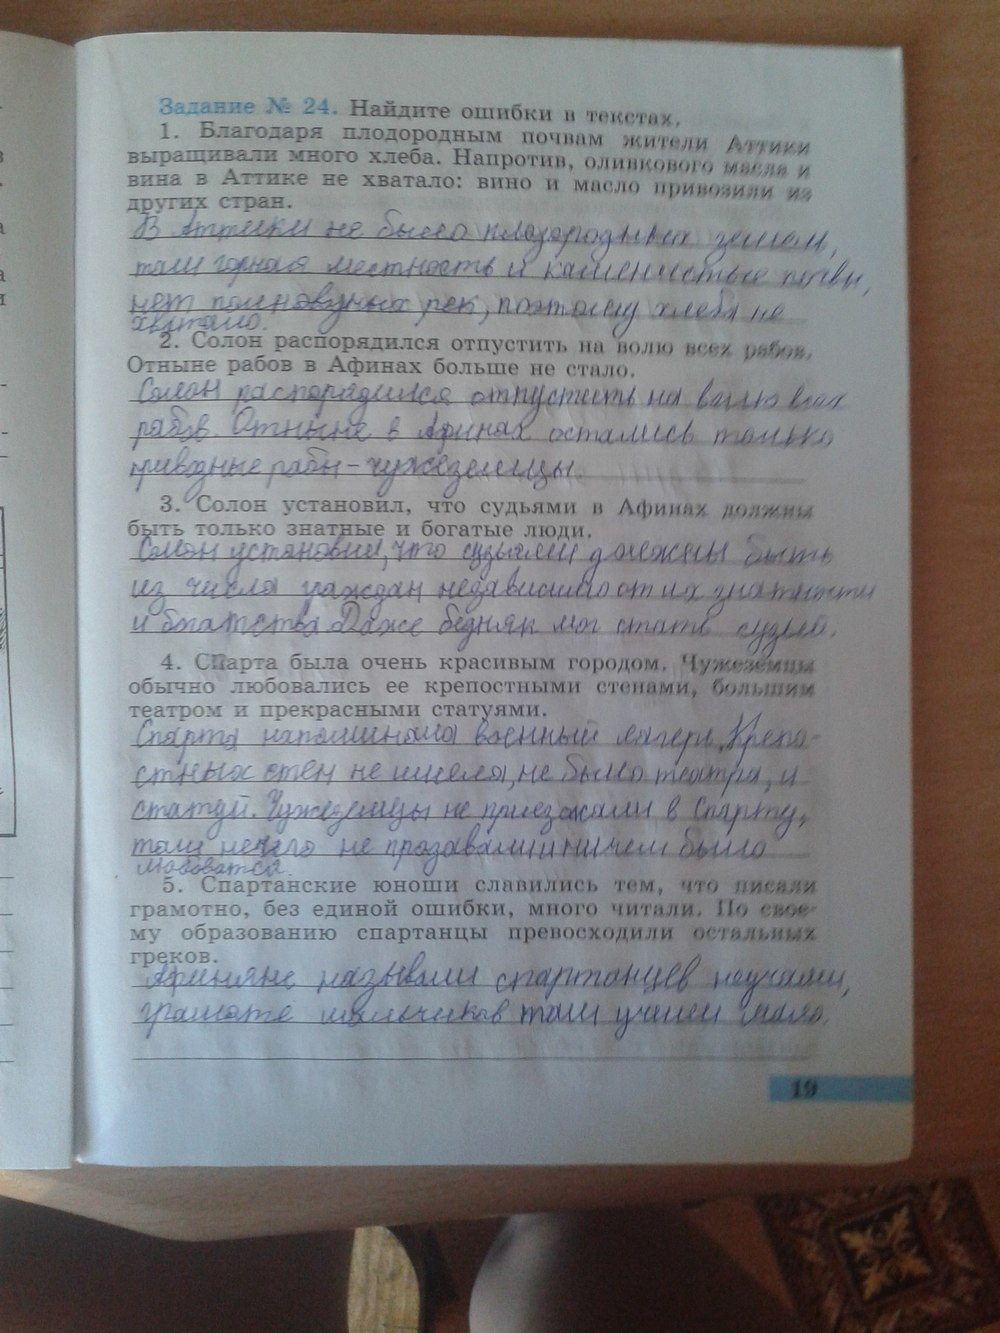 Задание № 24. Найдите ошибки в текстах.
1. Благодаря плодородным почвам жители Аттики
выращивали много хлеба. Напротив, оливкового масла и
вина в Аттике не хватало: вино и масло привозили из
других стран.
В Аттики не было плодородных земель,
там горная местность и каменистые почвы,
нет полноводных рек, поэтому хлеба не
хватало.
2. Солон распорядился отпустить на волю всех рабов.
Отныне рабов в Афинах больше не стало.
Солон распорядился отпустить на волю всех
рабов. Отныне в Афинах остались только
приводные рабы - чужеземцы.
3. Солон установил, что судьями в Афинах должны
быть только знатные и богатые люди.
Солон установил, что судьями должны быть
из числа граждан независимо от их знатности
и богатства. Даже бедняк мог стать судьей.
4. Спарта была очень красивым городом. Чужеземцы
обычно любовались ее крепостными стенами, большим
театром и прекрасными статуями.
Спарта напоминала военный лагерь. Крепо-
стных стен не имела, не было театра, и
статуй. Чужеземцы не приезжали в Спарту,
там нечего не продавали и ничем было
любоватся.
5. Спартанские юноши славились тем, что писали
грамотно, без единой ошибки, много читали. По свое-
му образованию спартанцы превосходили остальных
греков.
Афиняне называли спартанцев неучами,
грамоте мальчиков там учили мало.
19